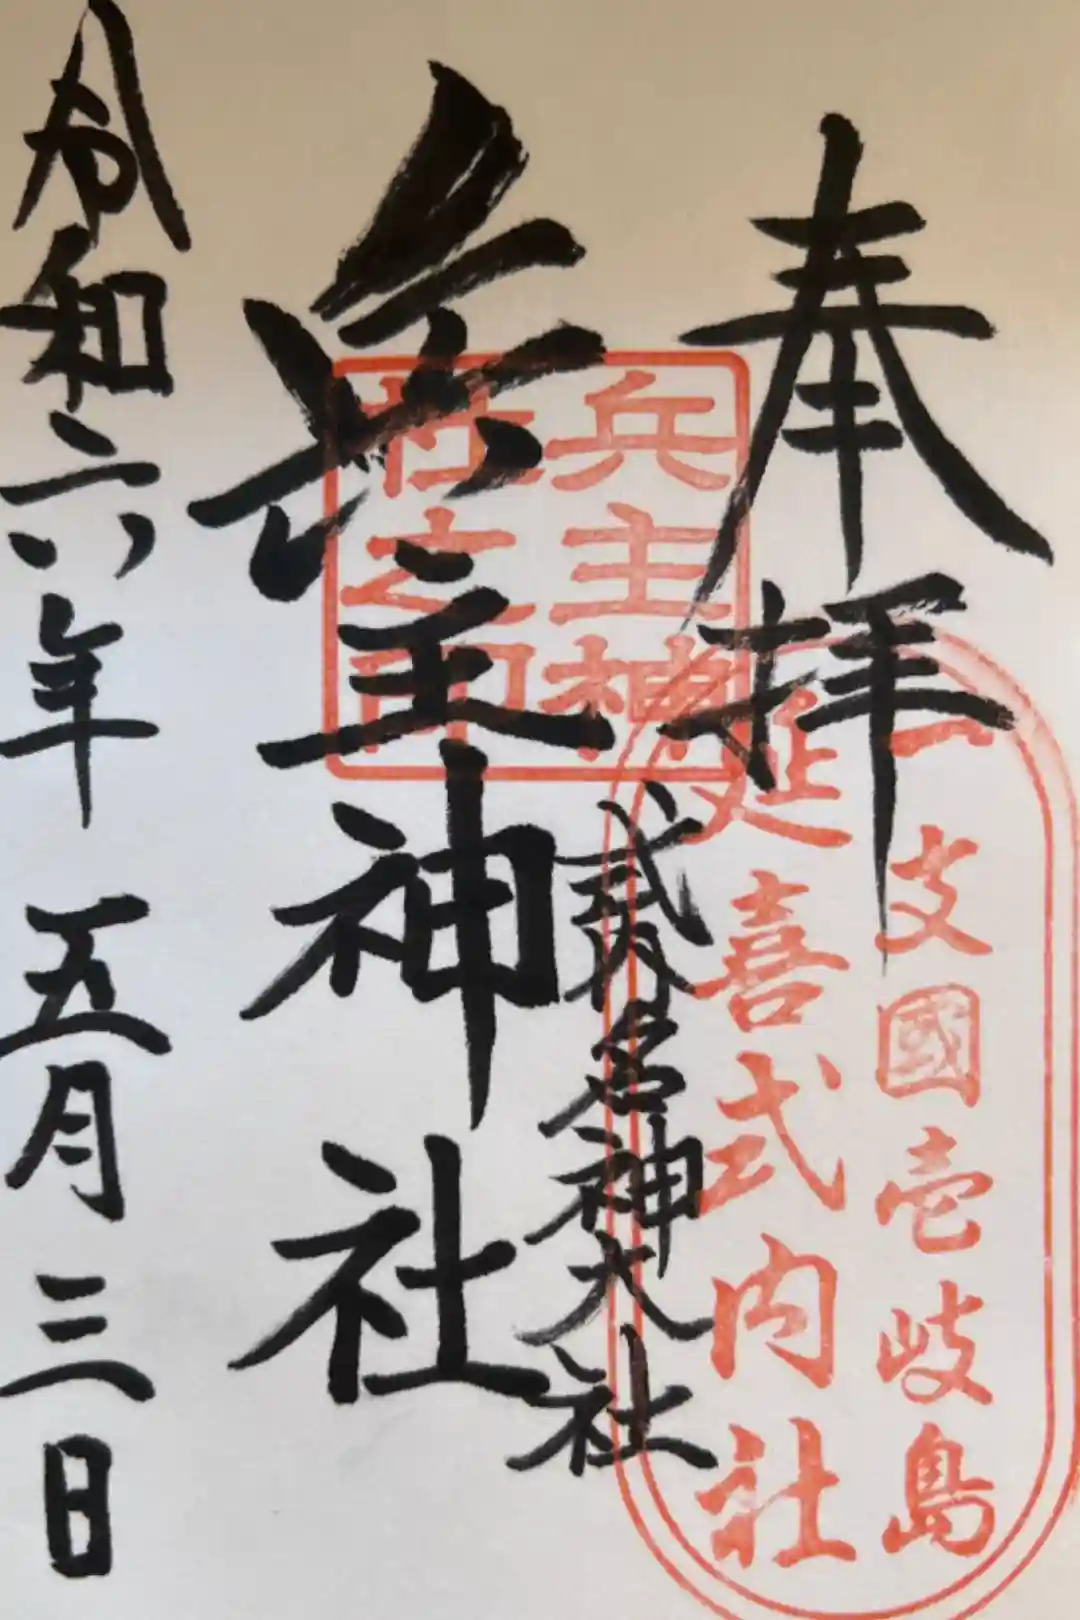 奉拝
一支國壱岐島
延喜式内社
兵主神社之印
弐拾名神大社
兵主神社
令和六年五月三日